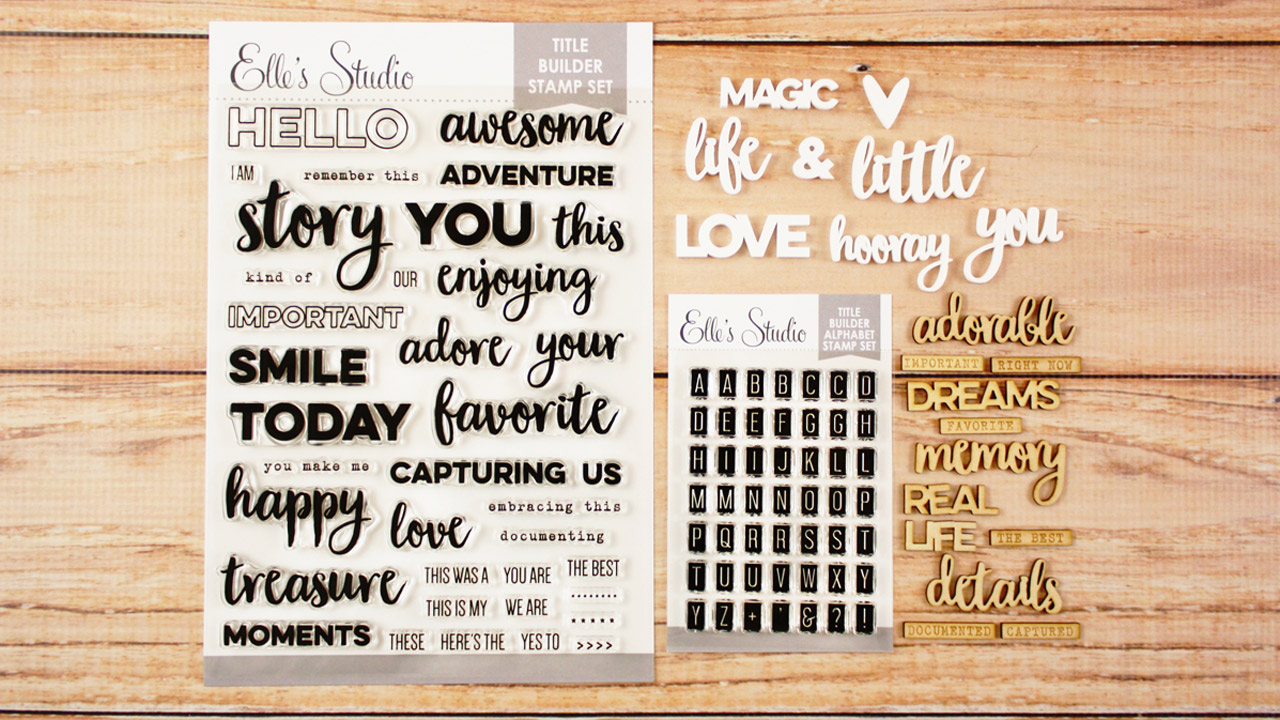 Elle's Studio
TITLE
BUILDER
STAMP SET
HELLO awesome
I AM remember this ADVENTURE
story YOU this
kind of OUR enjoying
IMPORTANT
adore your
SMILE
TODAY favorite
you make me CAPTURING US
happy love embracing this
documenting
treasure THIS WAS A YOU ARE THE BEST
THIS IS MY WE ARE
MOMENTS THESE HERE'S THE YES TO >>>>
MAGIC
life & little
LOVE hooray you
Elle's Studio
TITLE
BUILDER
ALPHABET
STAMP SET
A A B B C C D
D E E F G G H
H I I J K L L
M M N N O O P
P Q R R S S T
T U U V W X Y
Y Z + ' & ? !
adorable
IMPORTANT RIGHT NOW
DREAMS
FAVORITE
memory
REAL
LIFE THE BEST
details
DOCUMENTED CAPTURED